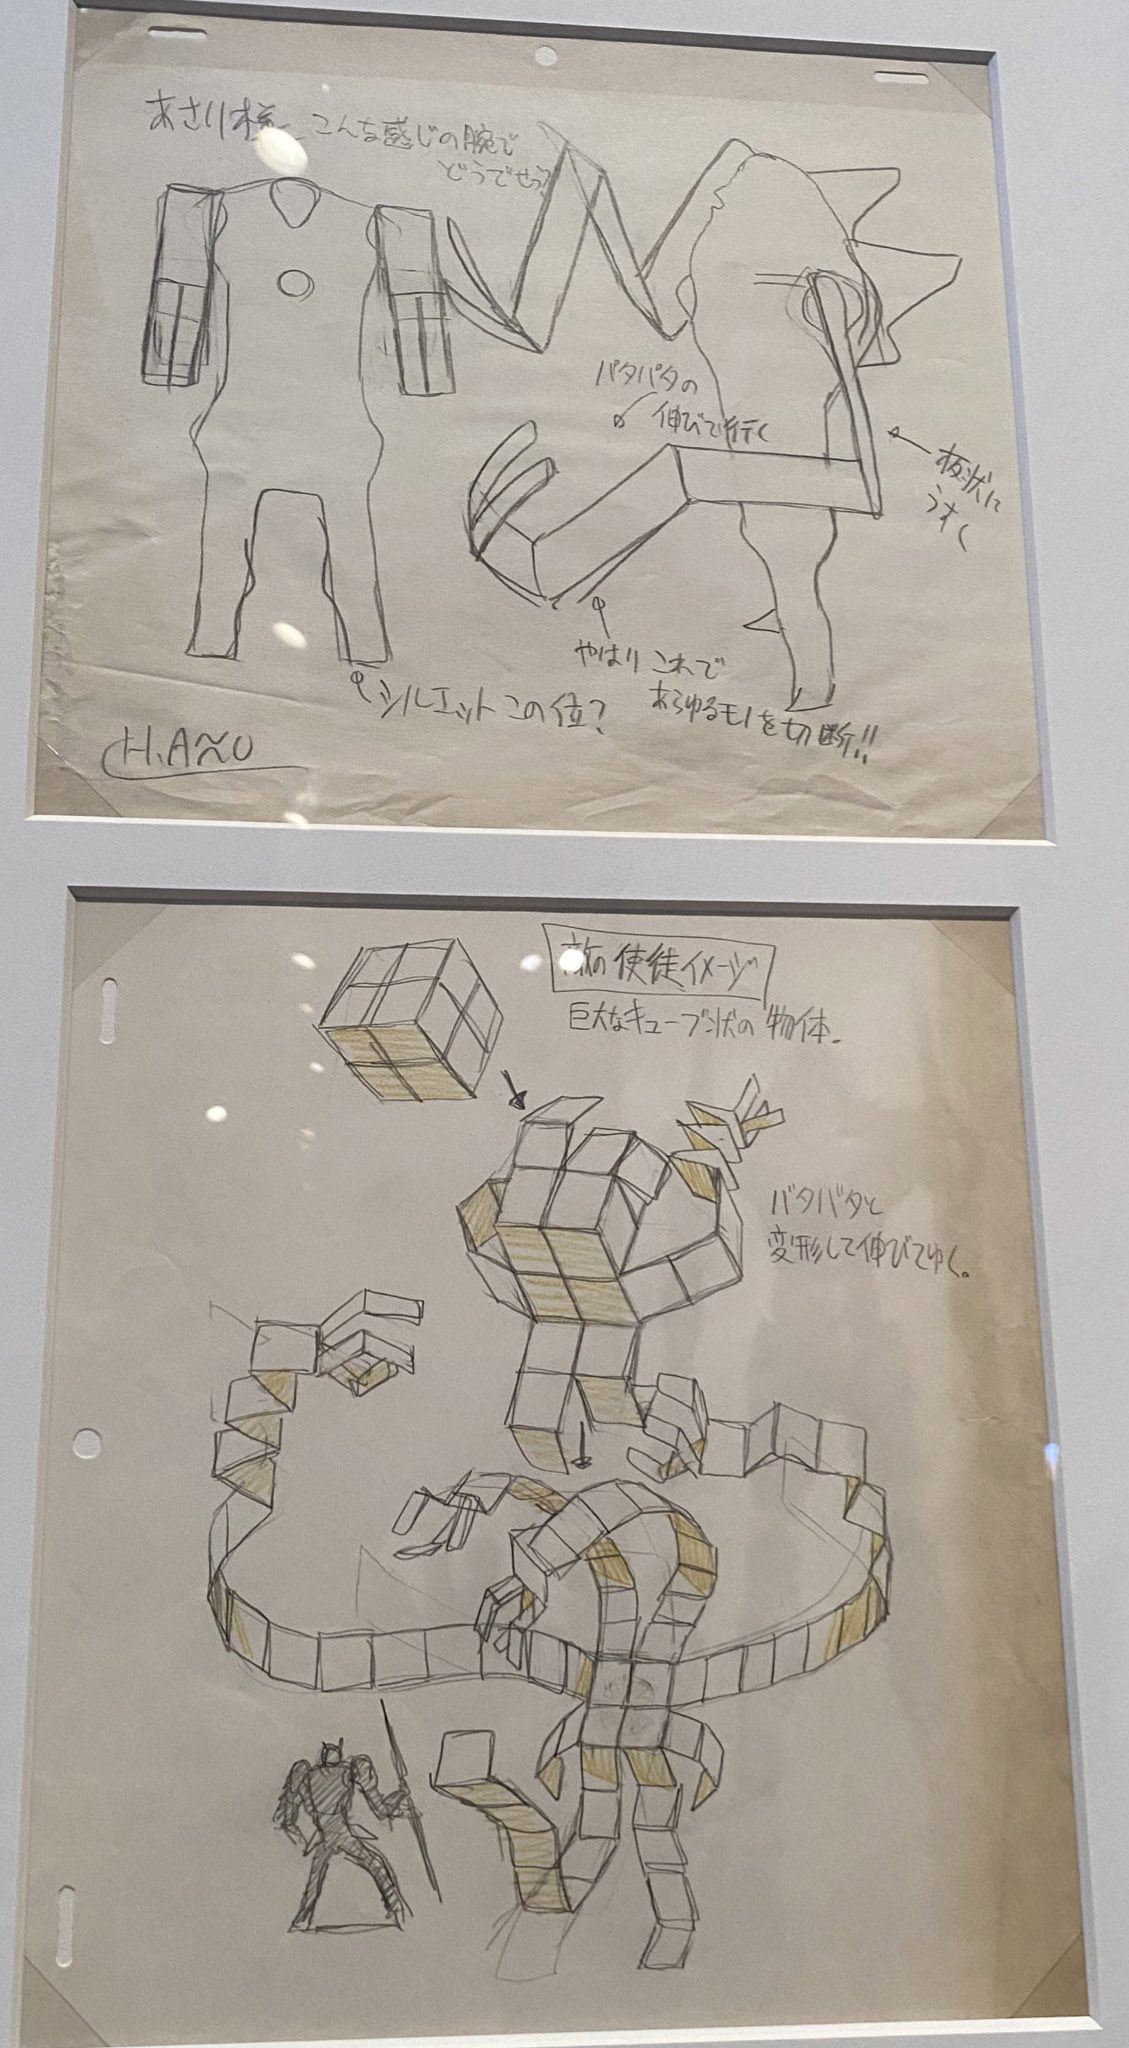 あさり様 こんな感じの腕で
どうでせう?
パタパタの
伸びで行く
板状に
うすく
やはり これで
あらゆるモノを切断!!
シルエットこの位?
H.ANO
敵の使徒イメージ
巨大なキューブ状の物体。
バタバタと
変形して伸びてゆく。